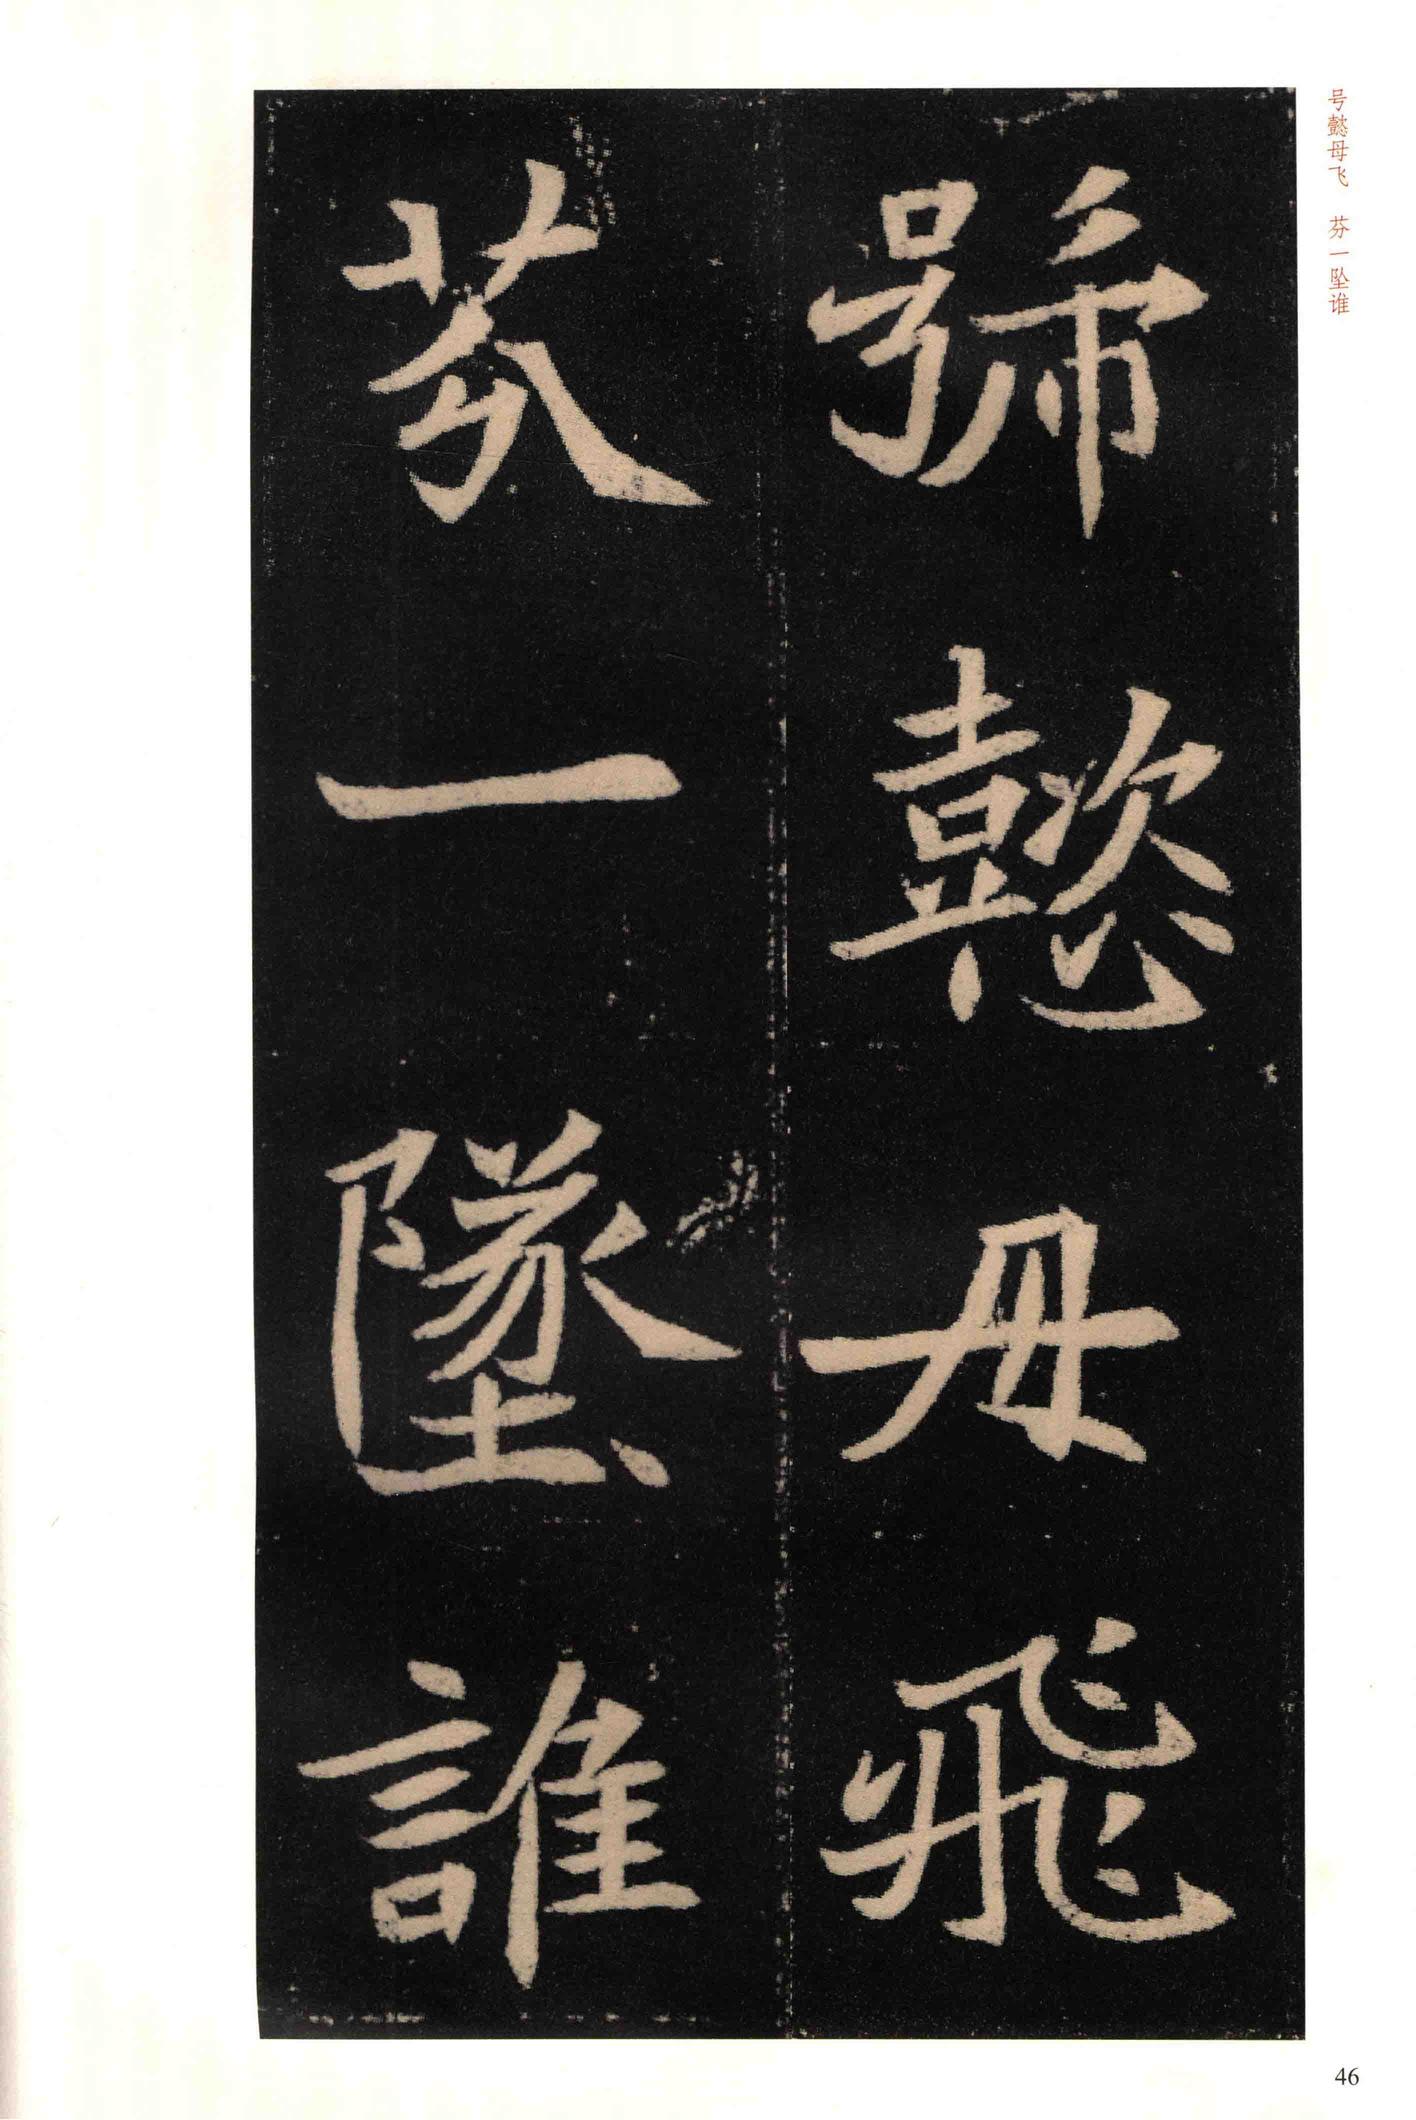 号懿母飞　芬一坠谁
號懿母飛
芬一墜誰
46